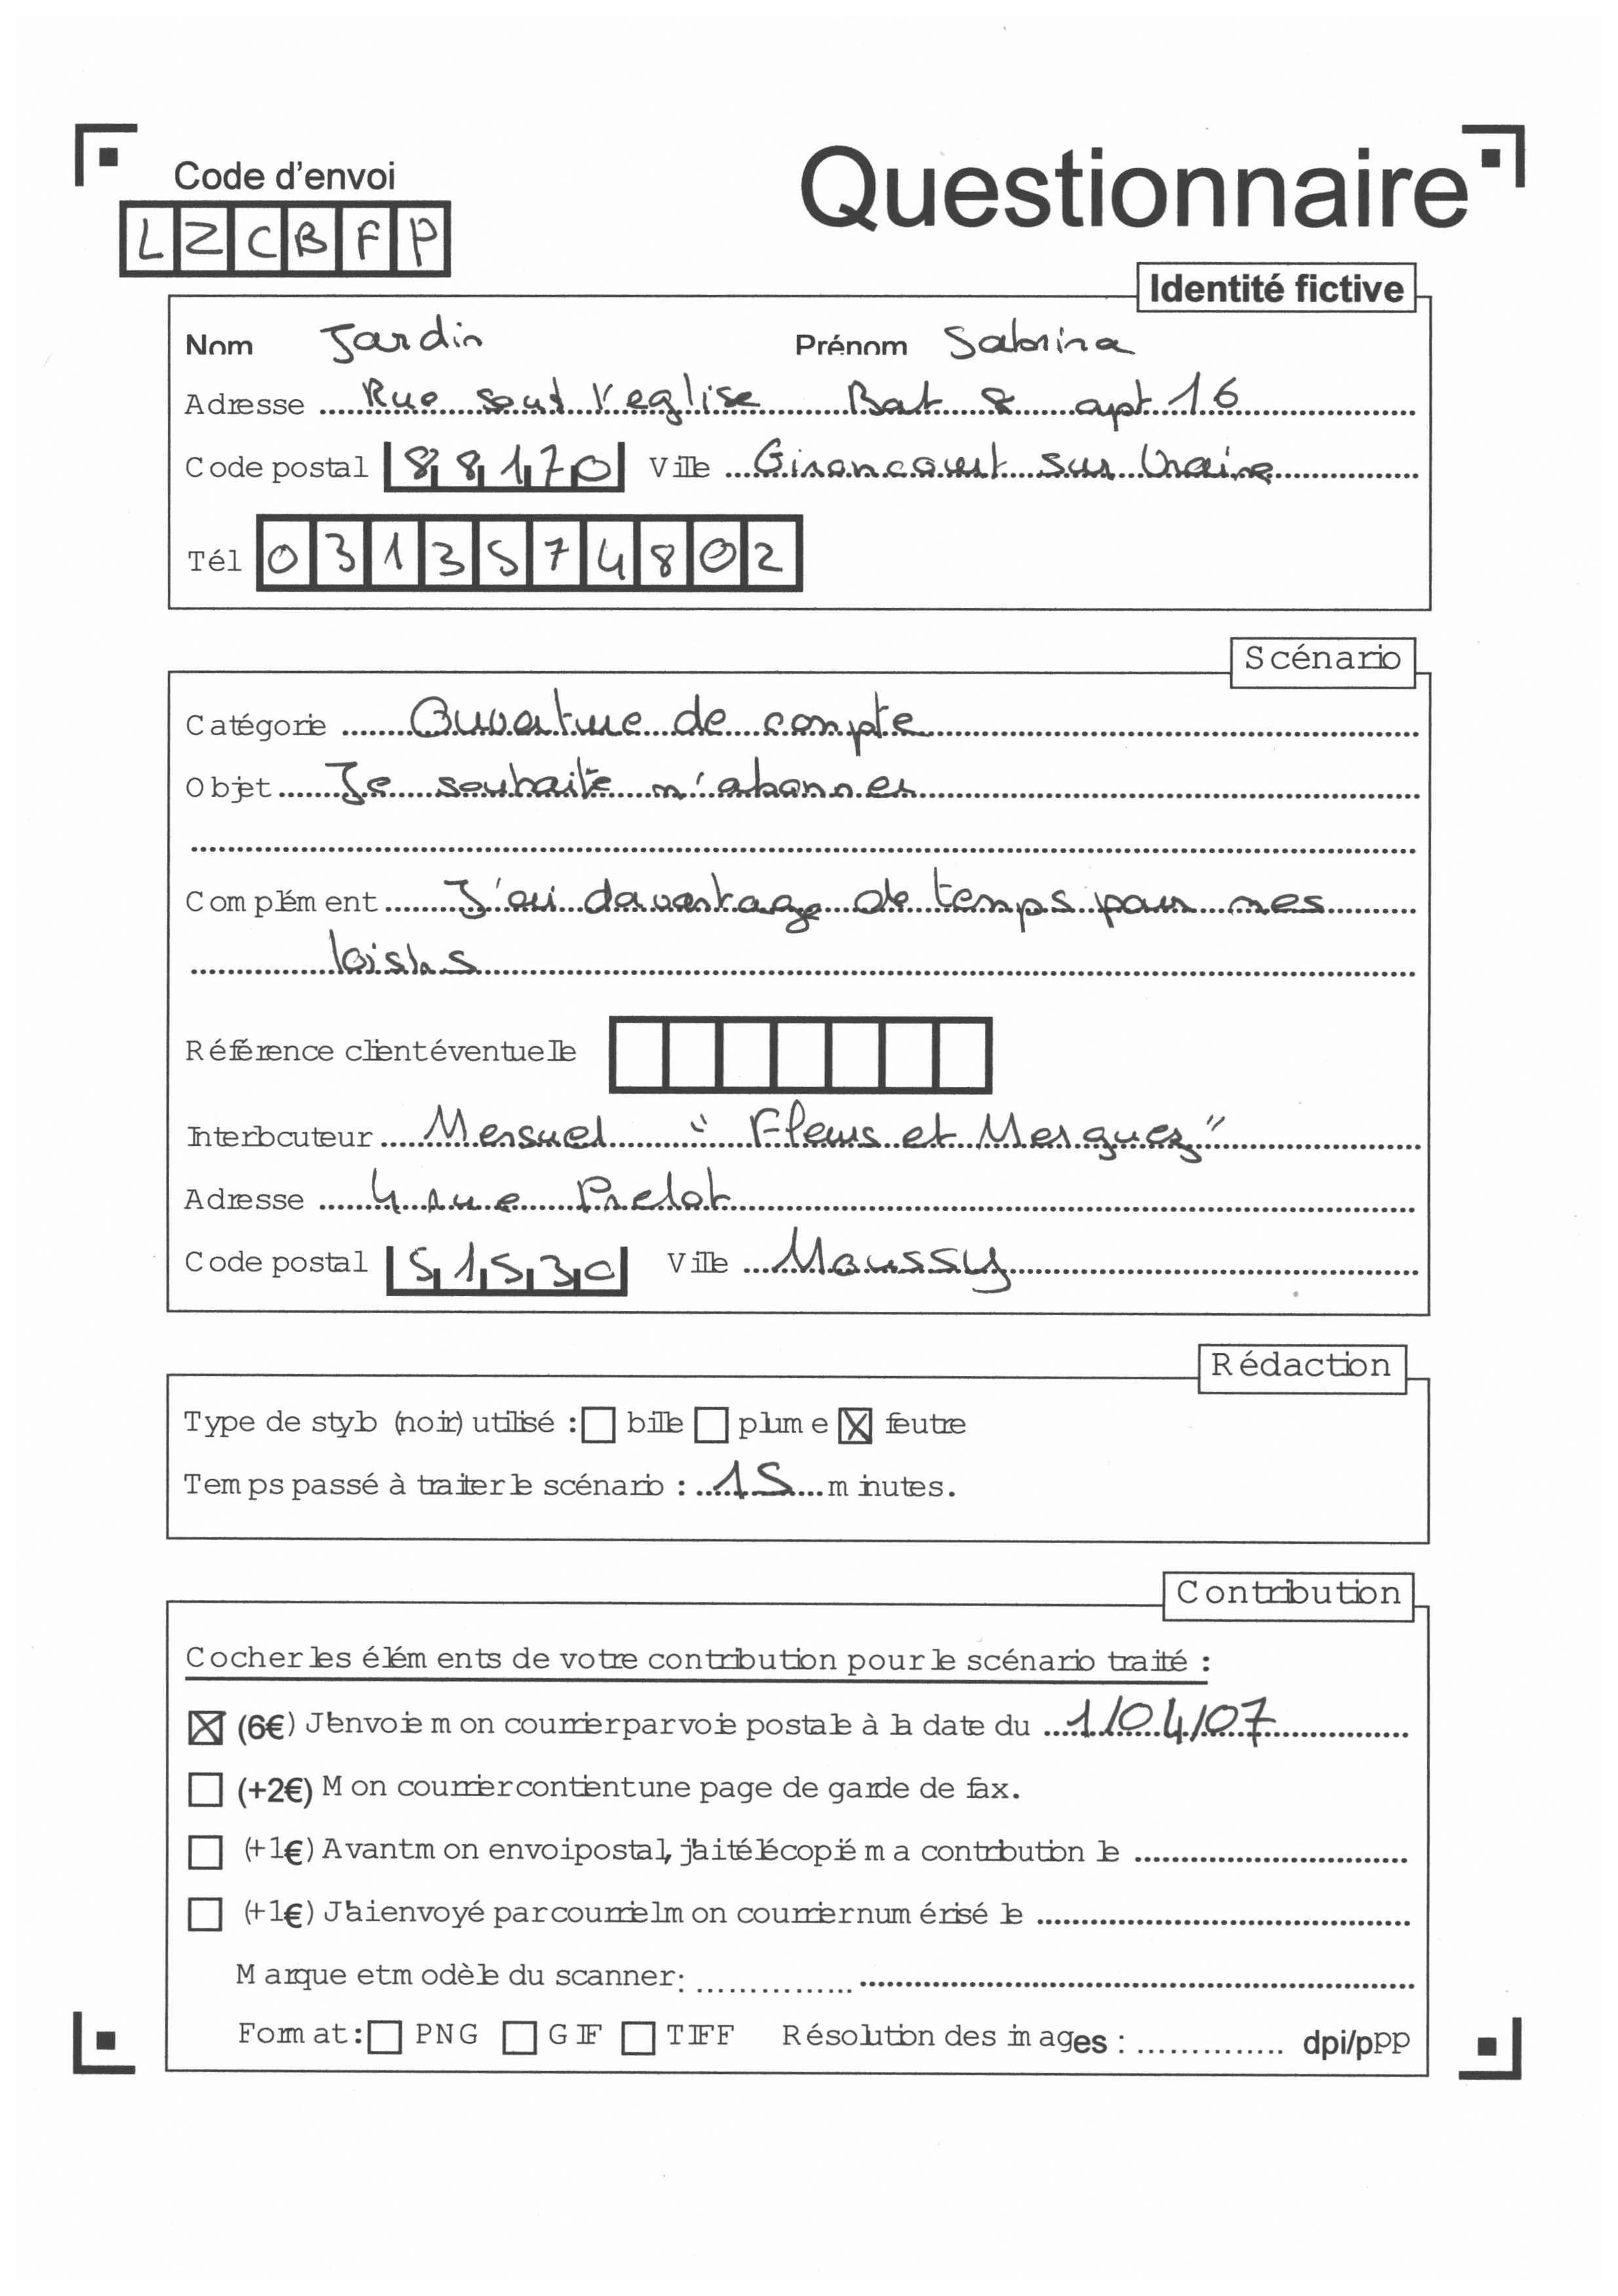 Code d'envoi
Questionnaire
LZCBFP
Identité fictive
Nom Jardin Prénom Sabrina
Adresse Rue sout l'eglise Bat 8 apt 16
Code postal 88170 Ville Gironcourt sur Vraine
Tél 0313574802
Scénario
Catégorie Ouverture de compte
Objet Je souhaite m'abonner
Complément J'ai davantage de temps pour mes
loisirs
Référence client éventuelle
Interlocuteur Mensuel "Fleurs et Merguez"
Adresse 4 rue Prelot
Code postal 51530 Ville Moussy
Rédaction
Type de stylo (noir) utilisé : bille plume feutre
Temps passé à traiter le scénario : 15 minutes.
Contribution
Cocher les éléments de votre contribution pour le scénario traité :
(6€) J'envoie mon courrier par voie postale à la date du 1/04/07
(+2€) Mon courrier contient une page de garde de fax.
(+1€) Avant mon envoi postal, j'ai télécopié ma contribution le
(+1€) J'ai envoyé par courriel mon courrier numérisé le
Marque et modèle du scanner:
Format: PNG GIF TIFF Résolution des images : dpi/ppp